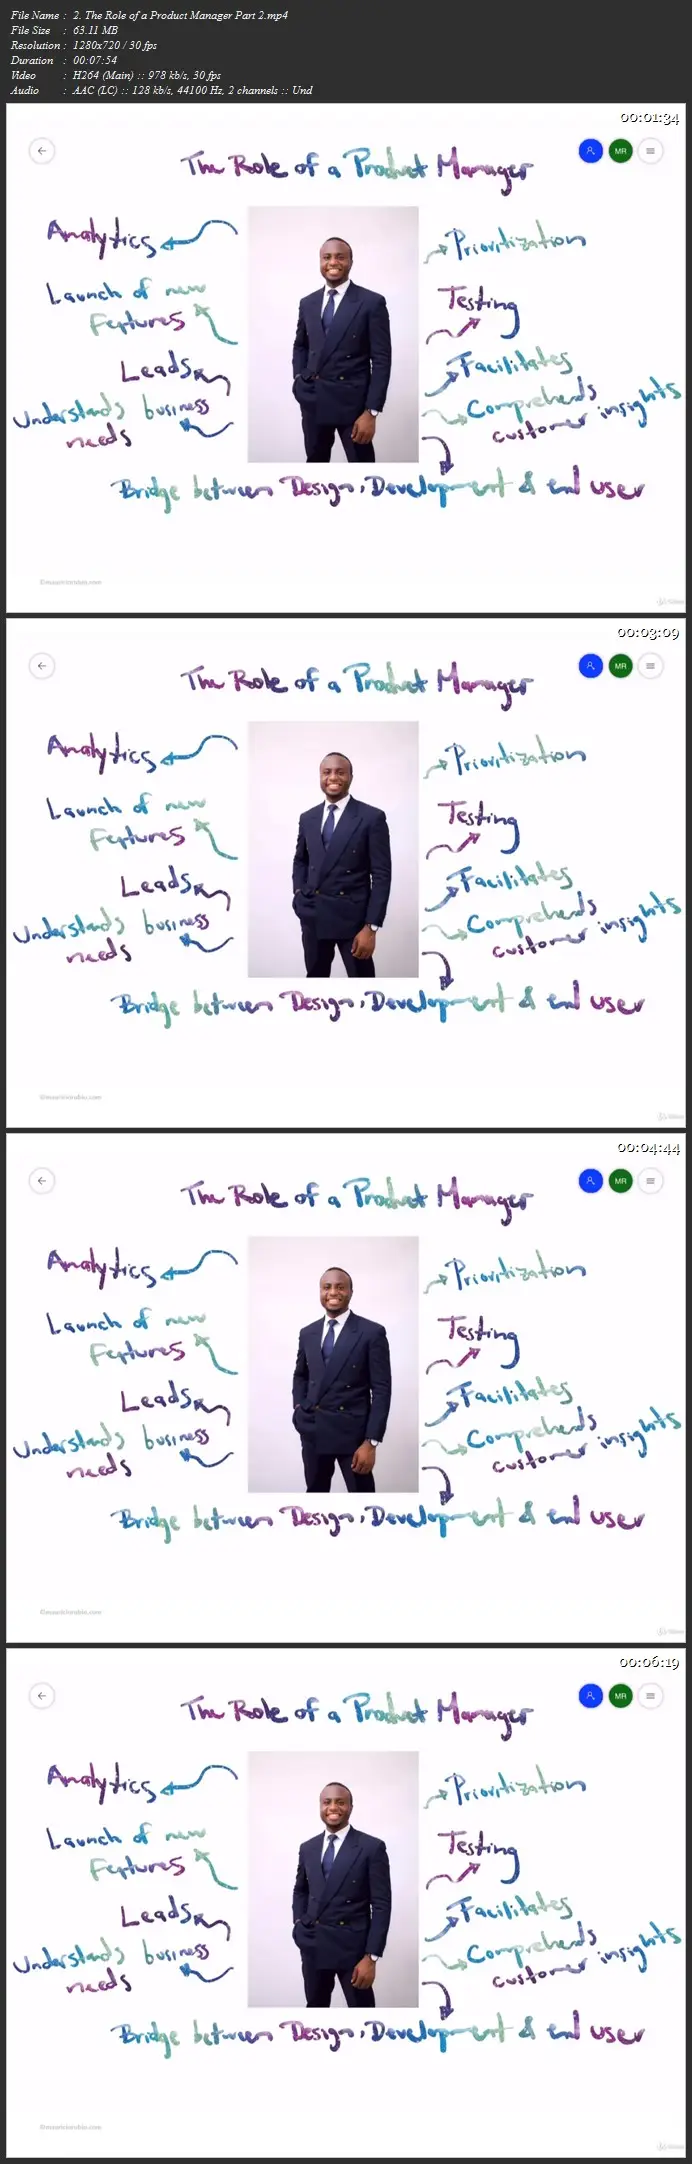 File Name : 2. The Role of a Product Manager Part 2.mp4
File Size : 63.11 MB
Resolution : 1280x720 / 30 fps
Duration : 00:07:54
Video : H264 (Main) :: 978 kb/s, 30 fps
Audio : AAC (LC) :: 128 kb/s, 44100 Hz, 2 channels :: Und
00:01:34
MR
The Role of a Product Manager
Analytics
Prioritization
Launch of new
Features
Testing
Leads
Facilitates
Understands business
needs
Comprehends
customer insights
Bridge between Design, Development & end user
00:03:09
MR
The Role of a Product Manager
Analytics
Prioritization
Launch of new
Features
Testing
Leads
Facilitates
Understands business
needs
Comprehends
customer insights
Bridge between Design, Development & end user
00:04:44
MR
The Role of a Product Manager
Analytics
Prioritization
Launch of new
Features
Testing
Leads
Facilitates
Understands business
needs
Comprehends
customer insights
Bridge between Design, Development & end user
00:06:19
MR
The Role of a Product Manager
Analytics
Prioritization
Launch of new
Features
Testing
Leads
Facilitates
Understands business
needs
Comprehends
customer insights
Bridge between Design, Development & end user